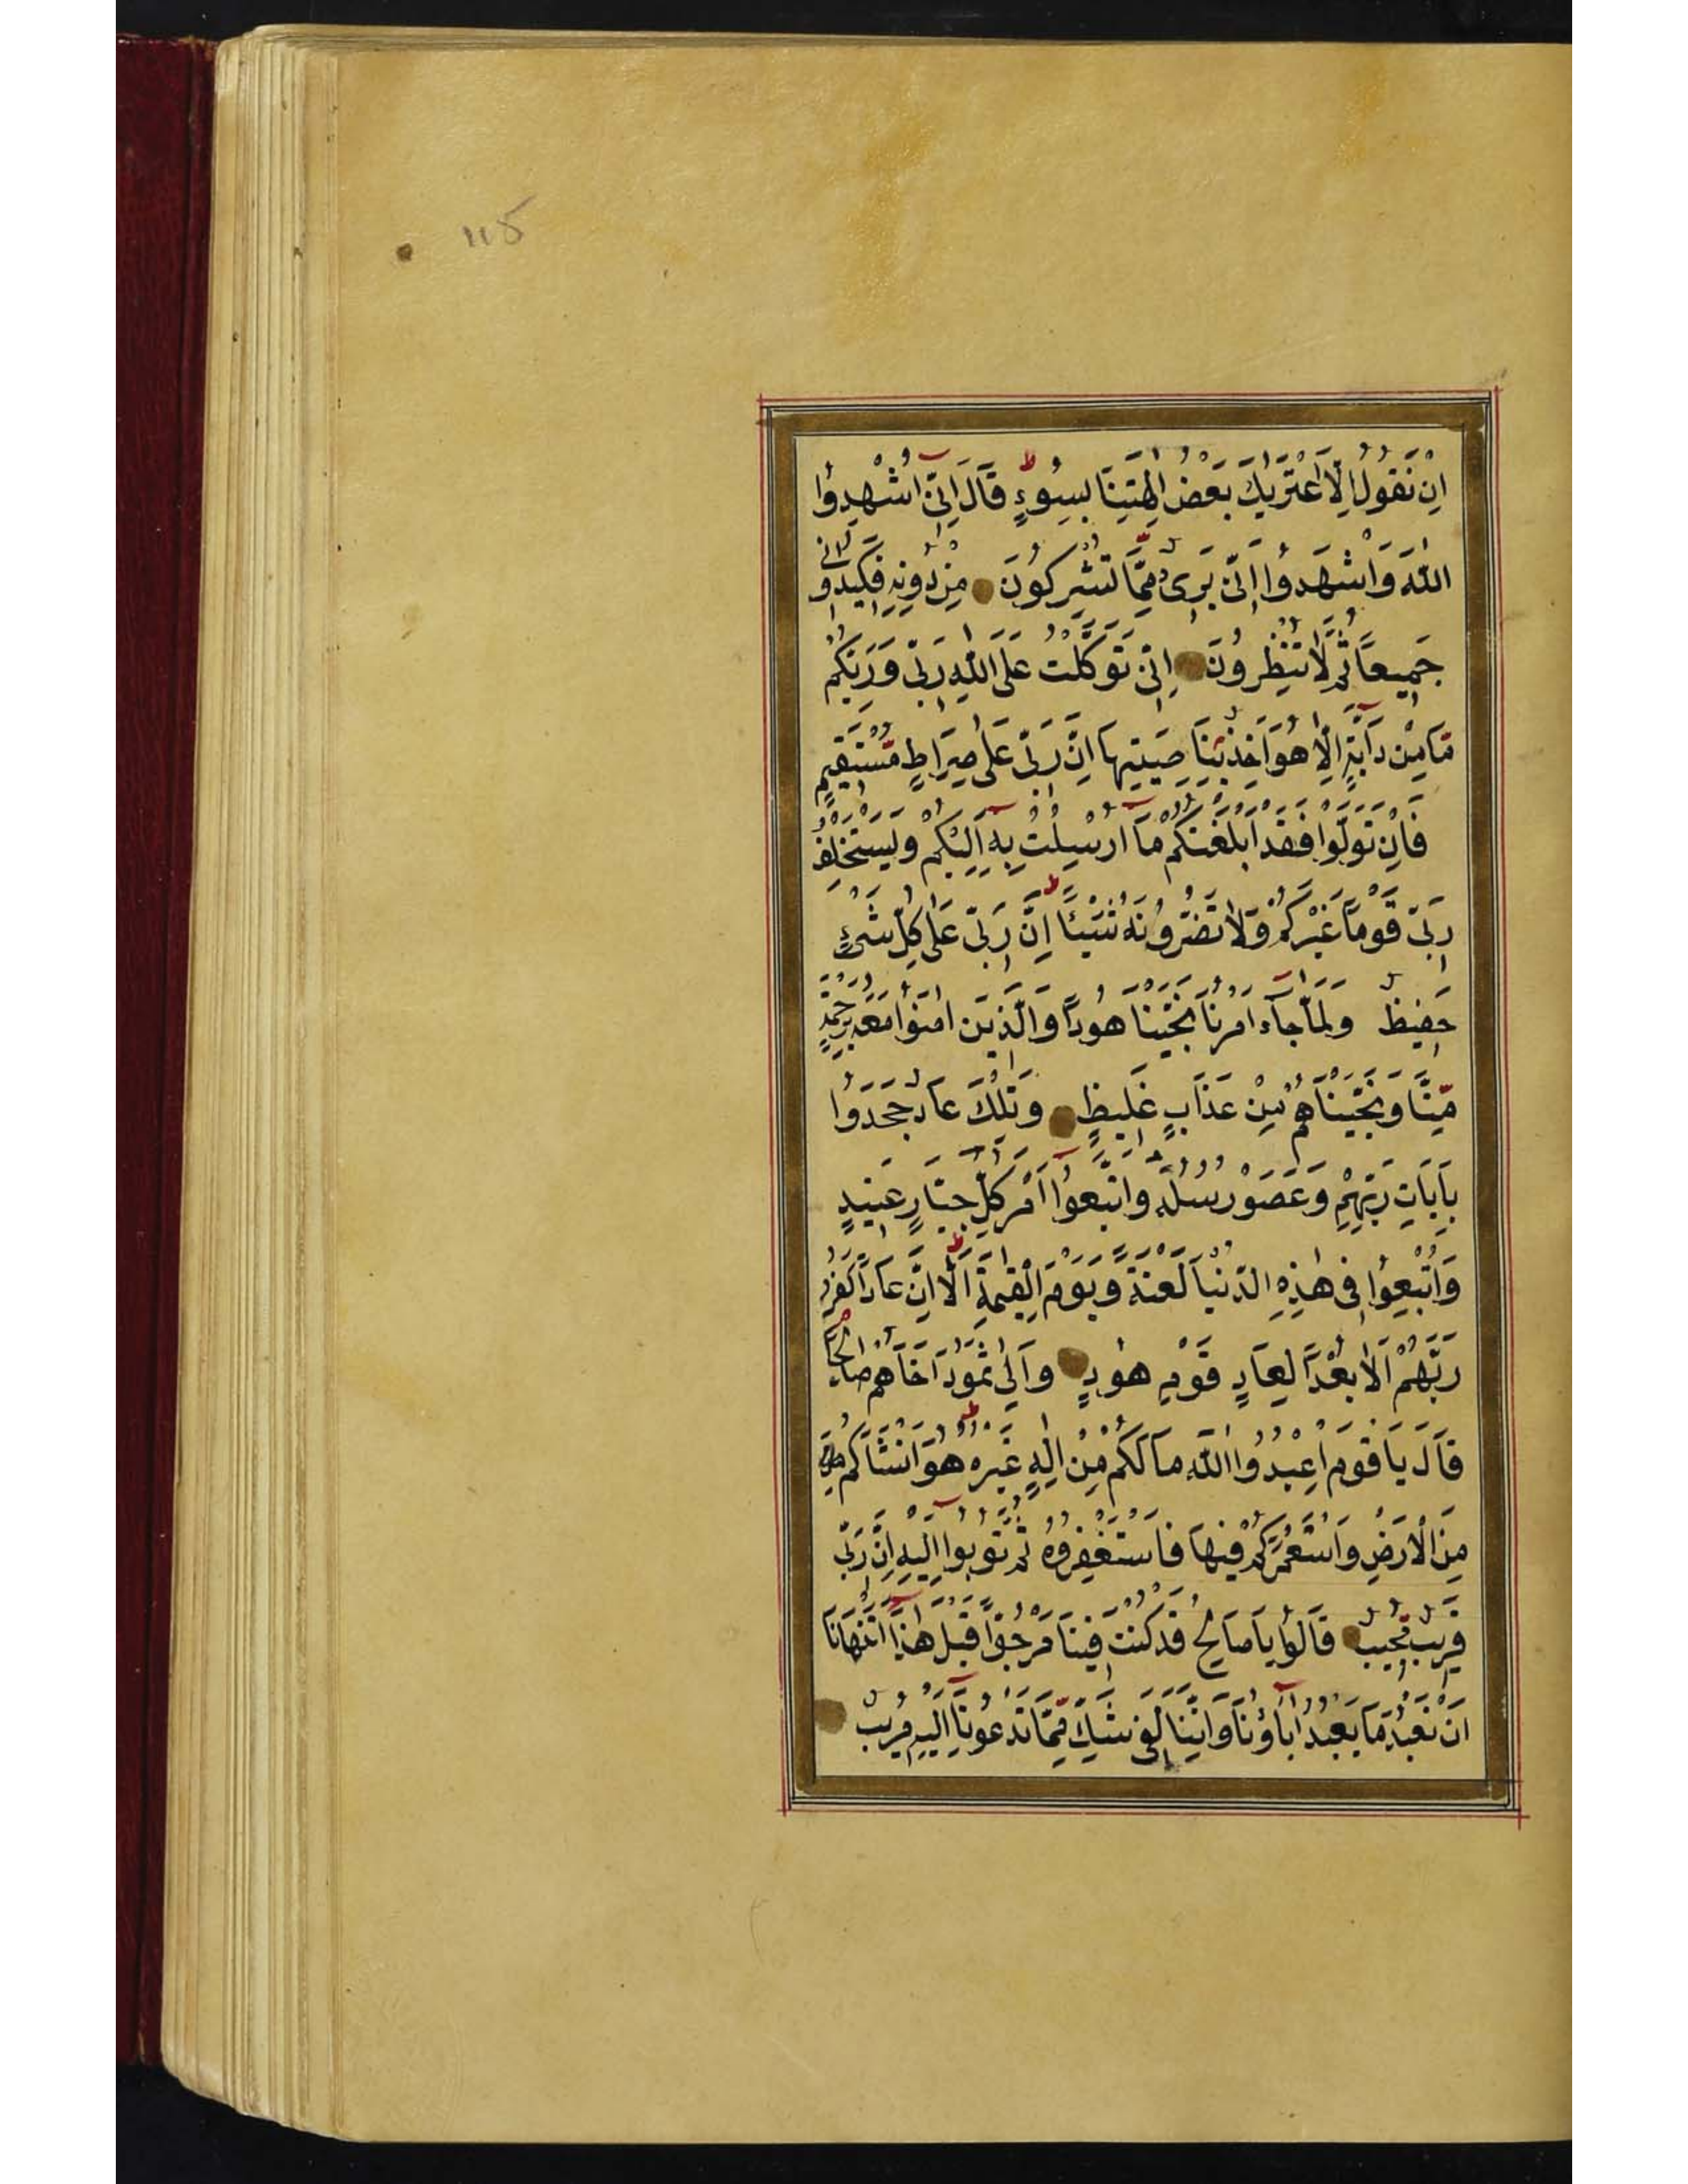 ١١٥
اِنْ نَقُولُ اِلَّا اعْتَرٰيكَ بَعْضُ اٰلِهَتِنَا بِسُوءٍ ط قَالَ اِنّٓى اُشْهِدُوا
اللّٰهَ وَاشْهَدُوا اِنّٓى بَرٓىءٌ مِمَّا تُشْرِكُونَ مِنْ دُونِهِ فَكِيدُونى
جَمِيعًا ثُمَّ لَا تُنْظِرُونَ اِنّٓى تَوَكَّلْتُ عَلَى اللّٰهِ رَبّى وَرَبِّكُمْ
مَّا مِنْ دَآبَّةٍ اِلَّا هُوَ اٰخِذٌ بِنَاصِيَتِهَا اِنَّ رَبّى عَلٰى صِرَاطٍ مُسْتَقِيمٍ
فَاِنْ تَوَلَّوْا فَقَدْ اَبْلَغْتُكُمْ مَٓا اُرْسِلْتُ بِهِٓ اِلَيْكُمْ وَيَسْتَخْلِفُ
رَبّى قَوْمًا غَيْرَكُمْ وَلَا تَضُرُّونَهُ شَيْئًا ط اِنَّ رَبّى عَلٰى كُلِّ شَىْءٍ
حَفِيظٌ وَلَمَّا جَآءَ اَمْرُنَا نَجَّيْنَا هُودًا وَالَّذِينَ اٰمَنُوا مَعَهُ بِرَحْمَةٍ
مِّنَّا وَنَجَّيْنَاهُمْ مِنْ عَذَابٍ غَلِيظٍ وَتِلْكَ عَادٌ جَحَدُوا
بِاٰيَاتِ رَبِّهِمْ وَعَصَوْا رُسُلَهُ وَاتَّبَعُوٓا اَمْرَ كُلِّ جَبَّارٍ عَنِيدٍ
وَاُتْبِعُوا فى هٰذِهِ الدُّنْيَا لَعْنَةً وَيَوْمَ الْقِيٰمَةِ ط اَلَٓا اِنَّ عَادًا كَفَرُوا
رَبَّهُمْ اَلَا بُعْدًا لِعَادٍ قَوْمِ هُودٍ وَاِلٰى ثَمُودَ اَخَاهُمْ صَالِحًا
قَالَ يَا قَوْمِ اعْبُدُوا اللّٰهَ مَا لَكُمْ مِنْ اِلٰهٍ غَيْرُهُ ط هُوَ اَنْشَاَكُمْ
مِنَ الْاَرْضِ وَاسْتَعْمَرَكُمْ فِيهَا فَاسْتَغْفِرُوهُ ثُمَّ تُوبُوٓا اِلَيْهِ اِنَّ رَبّى
قَرِيبٌ مُّجِيبٌ قَالُوا يَا صَالِحُ قَدْ كُنْتَ فِينَا مَرْجُوًّا قَبْلَ هٰذَٓا اَتَنْهَانَا
اَنْ نَعْبُدَ مَا يَعْبُدُ اٰبَآؤُنَا وَاِنَّنَا لَفى شَكٍّ مِّمَّا تَدْعُونَٓا اِلَيْهِ مُرِيبٌ